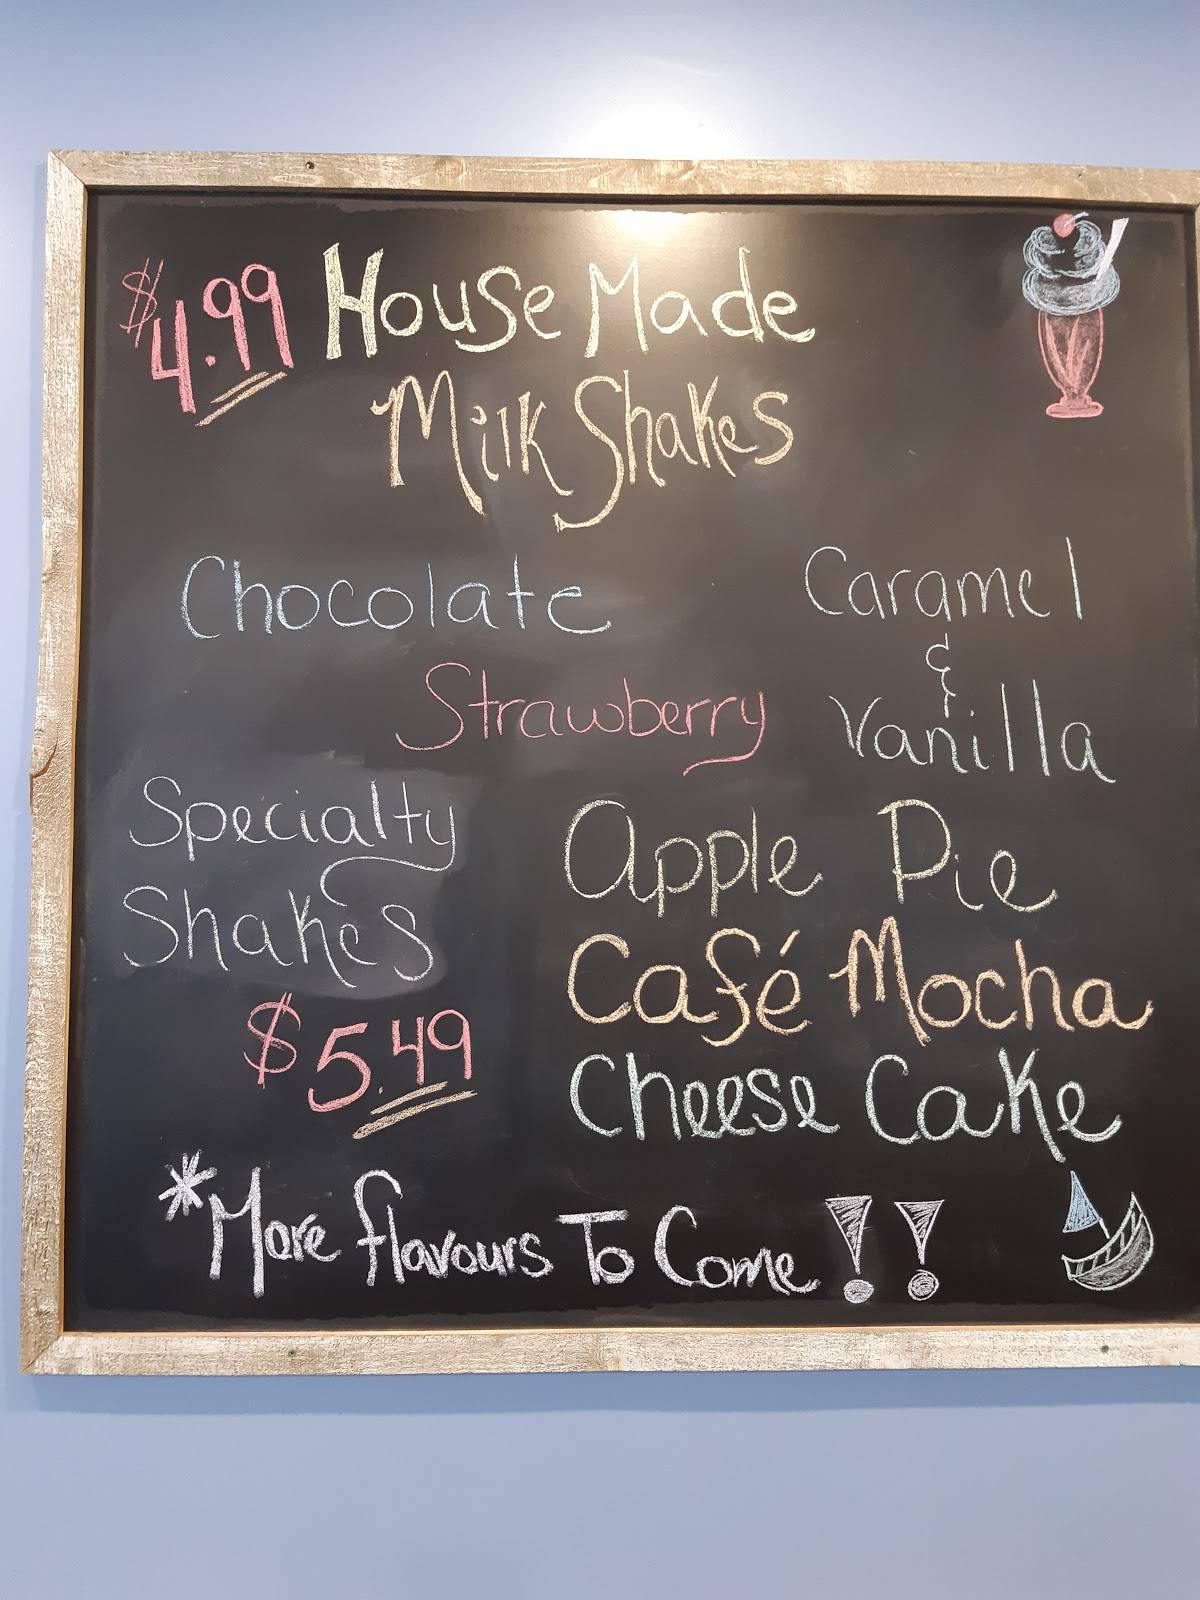 $4.99 House Made
Milk Shakes
Chocolate
Strawberry
Caramel
&
Vanilla
Specialty
Shakes
$5.49
Apple Pie
Café Mocha
Cheese Cake
*More flavours To Come!!